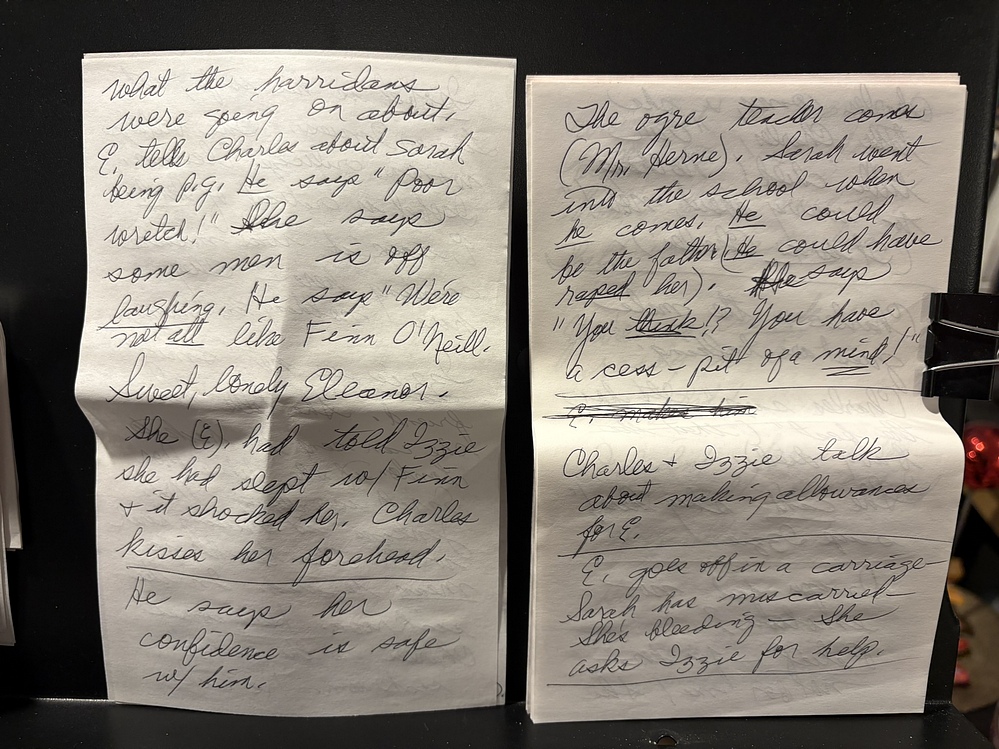 what the harridans
were going on about.
E. tells Charles about Sarah
being p.g. He says "Poor
wretch!" She says
some man is off
laughing. He says "We're
not all like Finn O'Neill.
Sweet, lonely Eleanor.
She (E). had told Izzie
she had slept w/ Finn
+ it shocked her. Charles
kisses her forehead.
He says her
confidence is safe
w/ him.
The ogre teacher comes
(Mr. Herne). Sarah went
into the school when
he comes. He could
be the father (He could have
raped her). He says
"You think!? You have
a cess-pit of a mind!"
E. makes him
Charles + Izzie talk
about making allowances
for E.
E. goes off in a carriage-
Sarah has miscarried-
She's bleeding - She
asks Izzie for help.